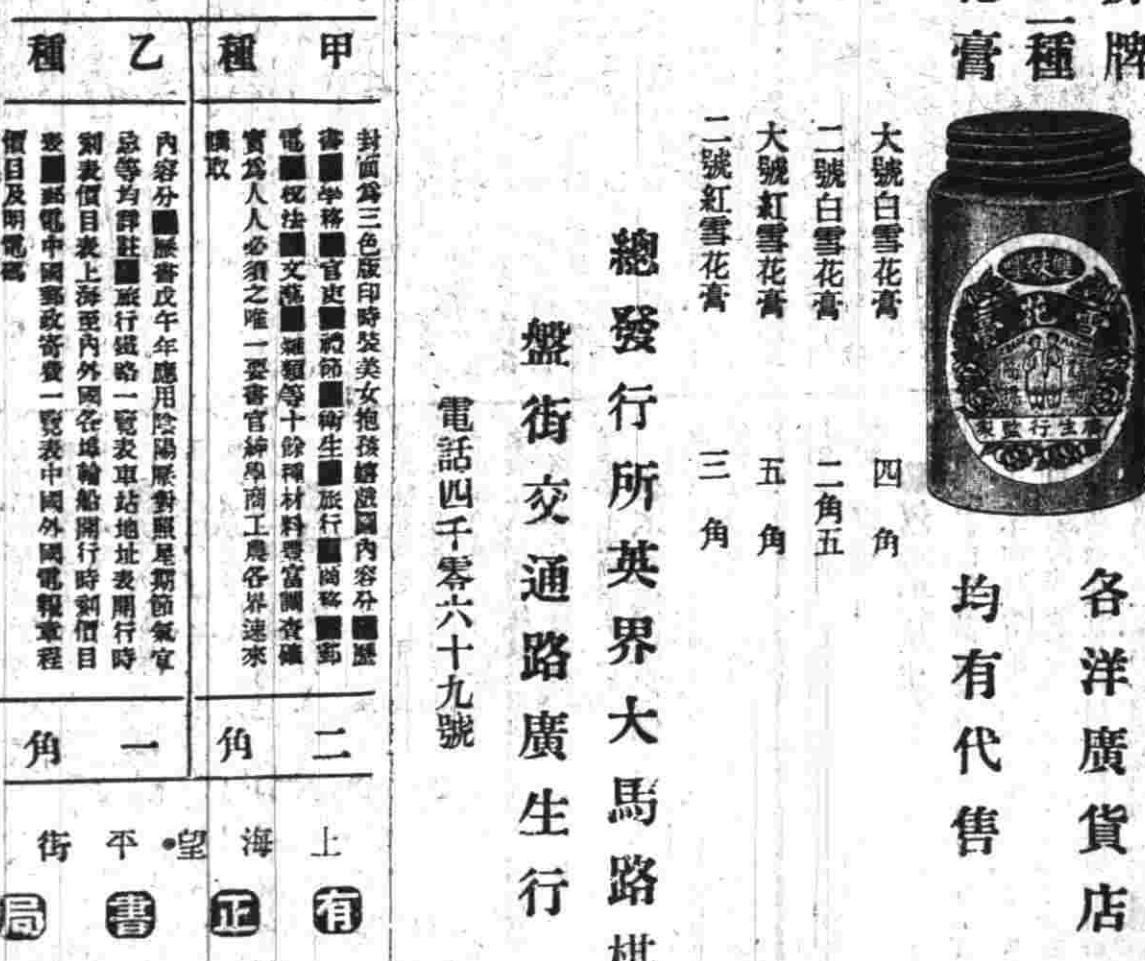 牌
二種
膏
雪花膏
廣生行監製
各洋廣貨店
均有代售
大號白雪花膏 四角
二號白雪花膏 二角五
大號紅雪花膏 五角
二號紅雪花膏 三角
總發行所英界大馬路棋
盤街交通路廣生行
電話四千零六十九號
甲種
封面爲三色版印時裝美女抱孩嬉戲圖內容分 歷
書 學務 官吏 禮節 衛生 旅行 商務 郵
電 稅法 文藝 雜類等十餘種材料豐富調查確
實爲人人必須之唯一要書官紳學商工農各界速來
購取
二角
乙種
內容分 歷書戊午年應用陰陽歷對照星期節氣宜
忌等均詳註 旅行鐵路一覽表車站地址表開行時
刻表價目表上海至內外國各埠輪船開行時刻價目
表 郵電中國郵政寄費一覽表中國外國電報章程
價目及明電碼
一角
上海望平街
有正書局